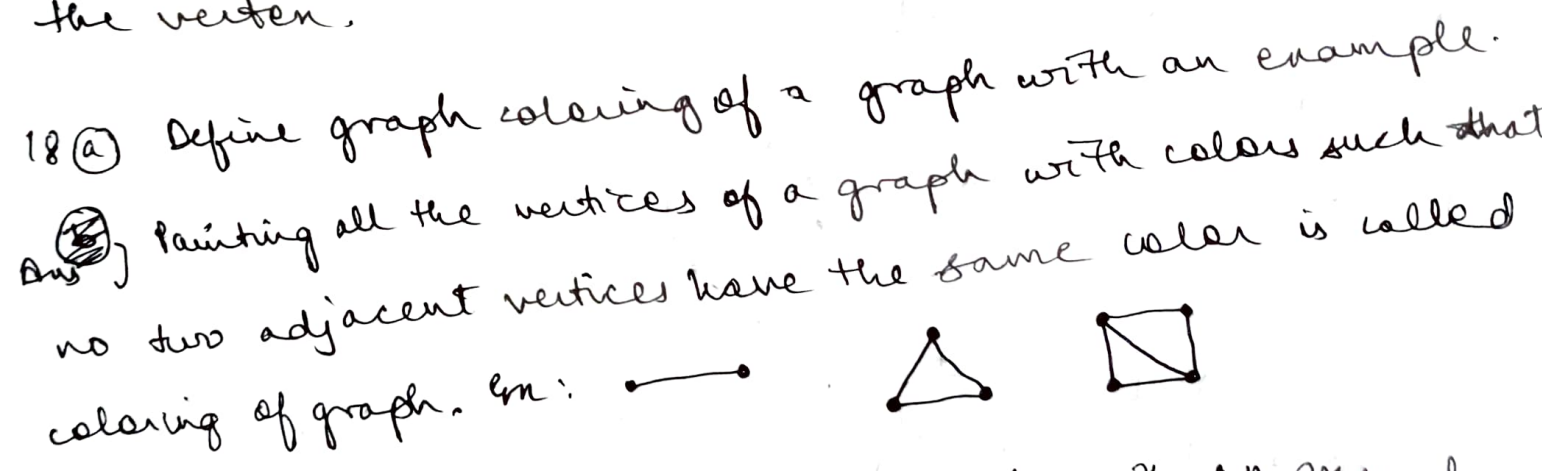 the vertex.
18 (a) Define graph coloring of a graph with an example.
Ans] Painting all the vertices of a graph with colors such that
no two adjacent vertices have the same color is called
coloring of graph. Ex: